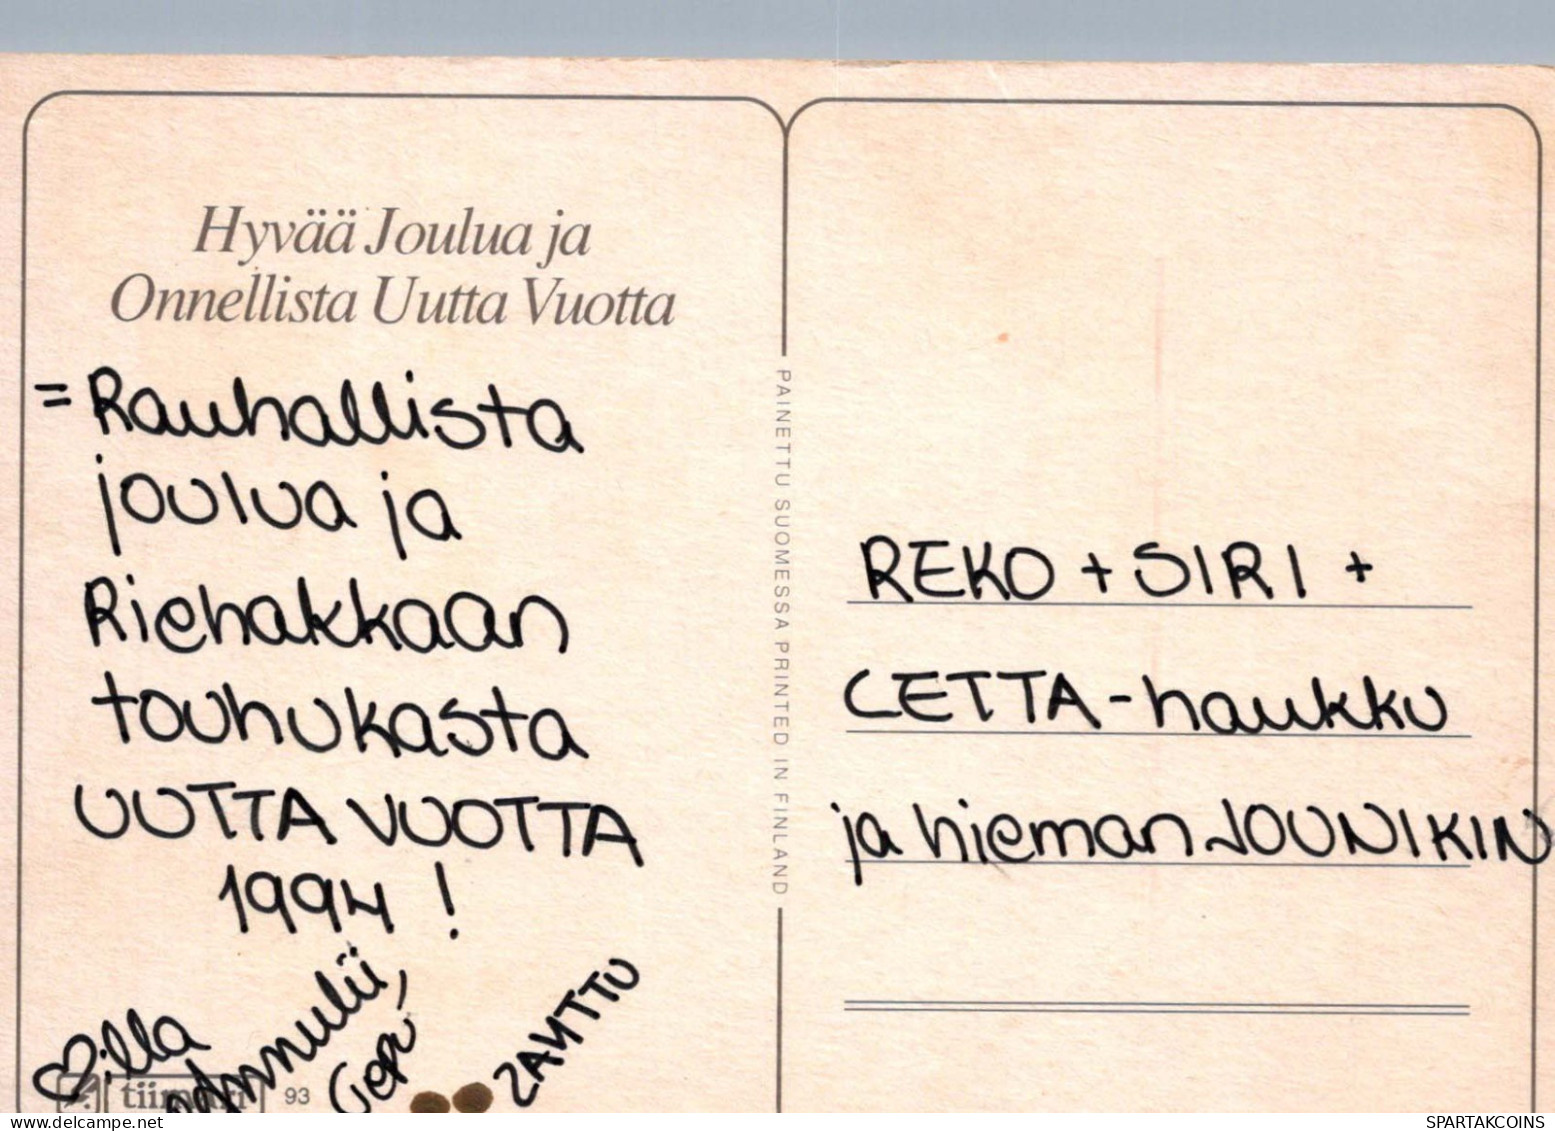 Hyvää Joulua ja
Onnellista Uutta Vuotta
= Rauhallista
joulua ja
Riehakkaan
touhukasta
UUTTA VUOTTA
1994 !
illa
Annulii,
tiimari 93
PAINETTU SUOMESSA PRINTED IN FINLAND
REKO + SIRI +
CETTA-haukku
ja hieman JOUNIKIN
www.delcampe.net
SPARTAKCOINS